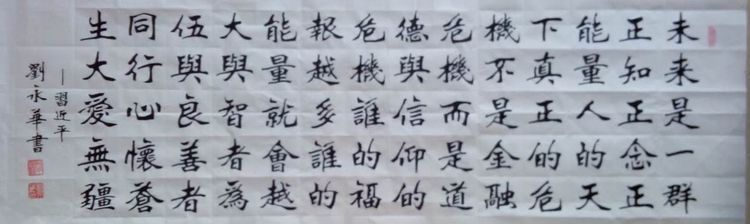 未来是一群
正知正念正
能量人的天
下真正的危
機不是金融
危機而是道
德與信仰的
危機誰的福
報越多誰的
能量就會越
大與智者為
伍與良善者
同行心懷蒼
生大愛無疆
—習近平
劉永華書